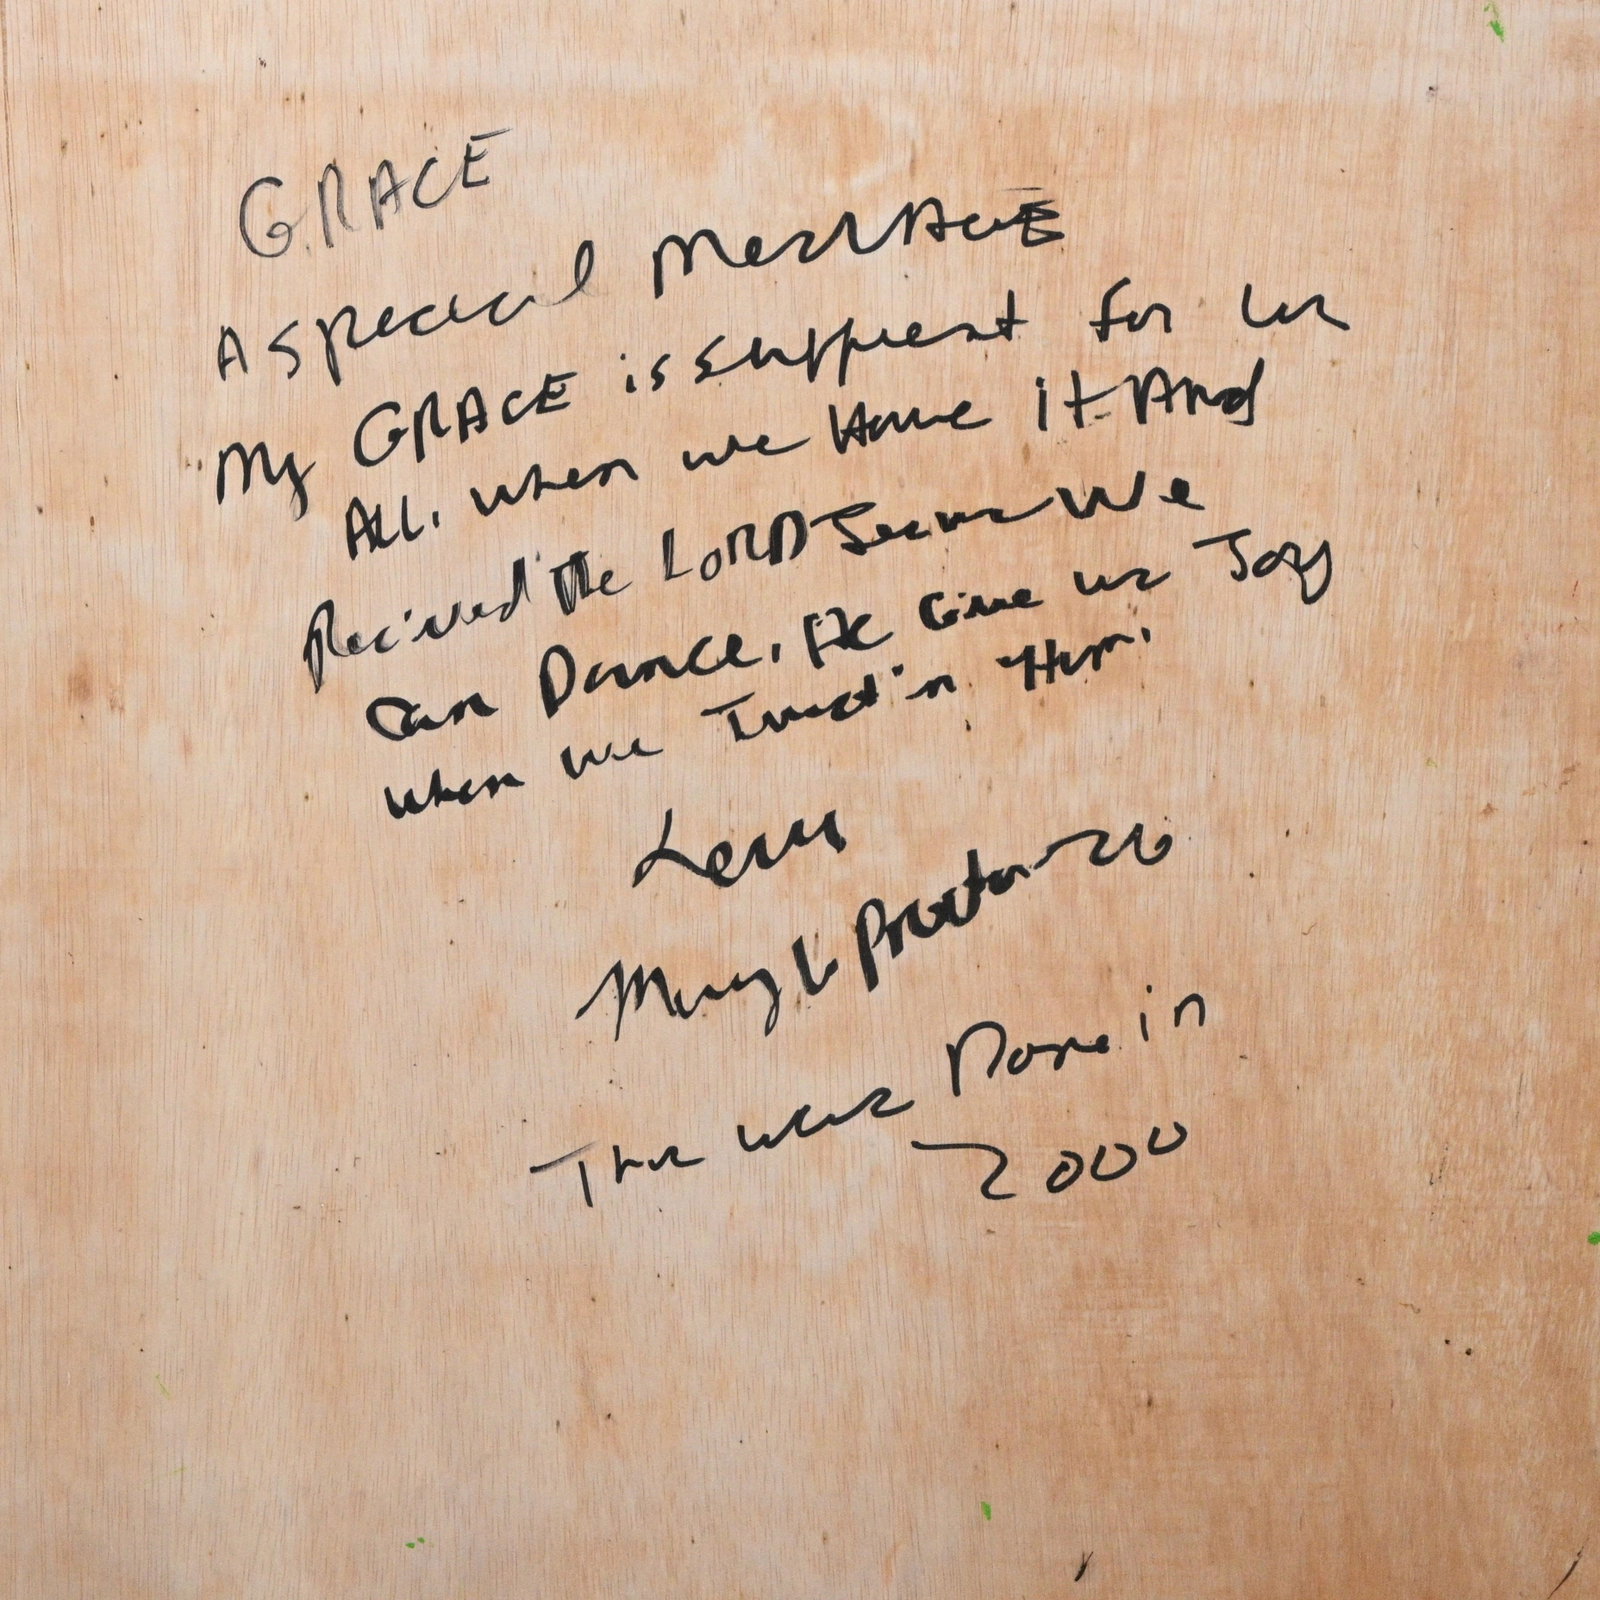 GRACE
A special Message
My GRACE is suffient for us
All. when we Have it And
Recived the LORD Jesus We
Can Dance. He Give us Joy
when we Trust in Him.
Love
Mary L Proctor
This was Done in
2000